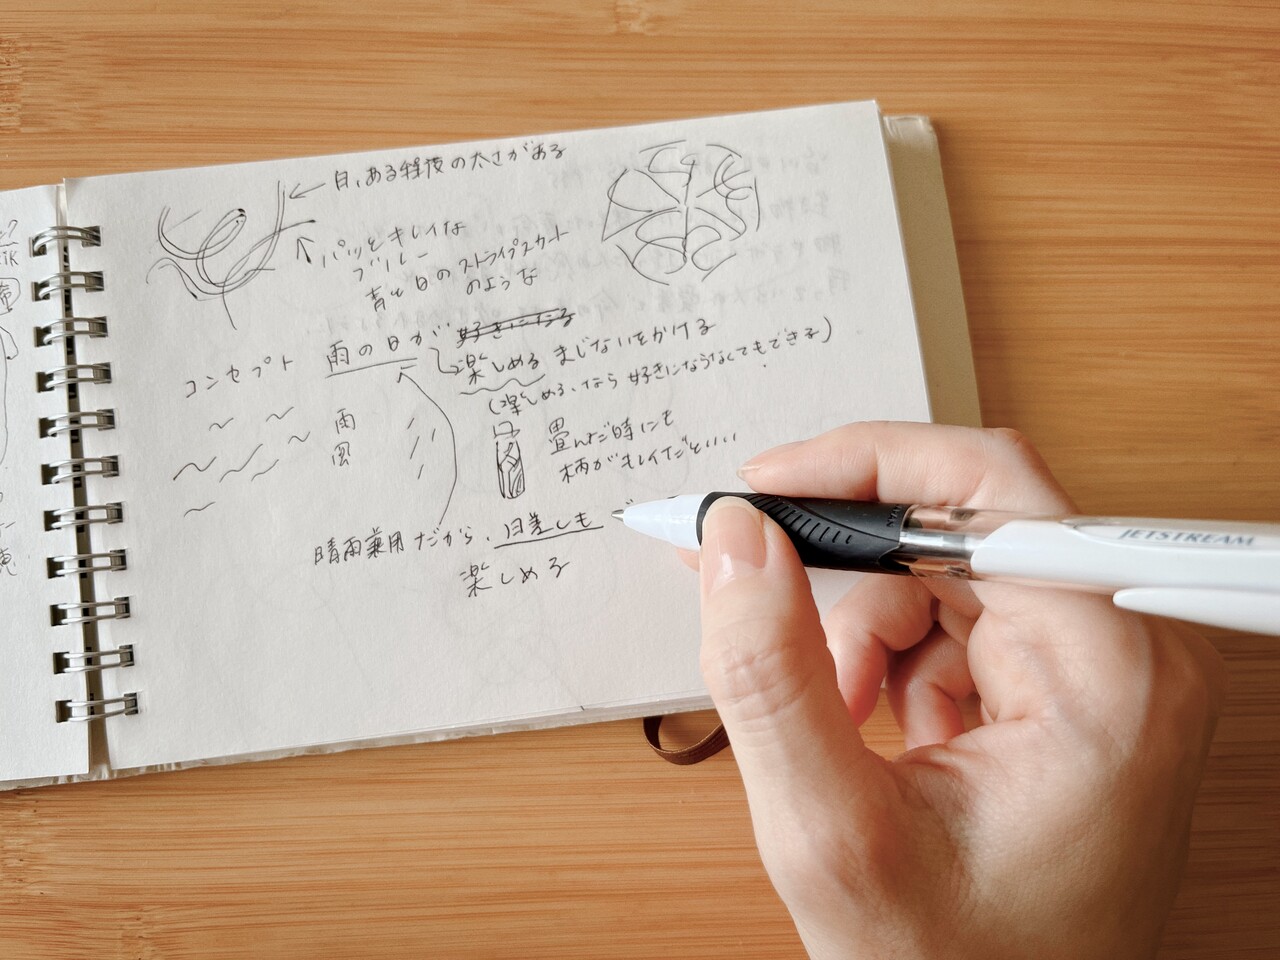 ← 白、ある程度の太さがある
パッとキレイな
ブルー
青と白のストライプスカート
のような
コンセプト 雨の日が 好きになる
楽しめる まじないをかける
(楽しめる、なら 好きにならなくてもできる)
雨
風
畳んだ時にも
柄がキレイだといい
晴雨兼用だから、日差しも
楽しめる
JETSTREAM